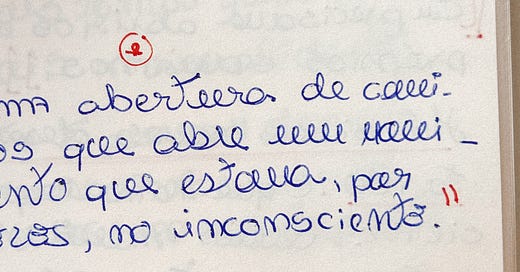 2
ma abertura de cami-
os que abre um movi-
ento que estava, por
ezes, no inconsciente."